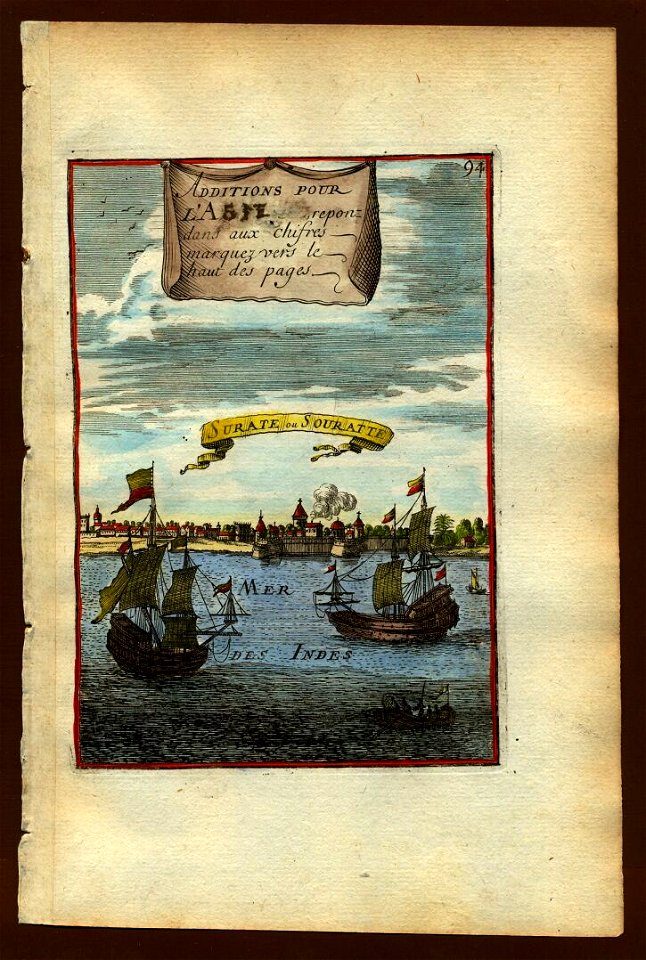 94
ADDITIONS POUR
L'ASIE repon=
dans aux chifres
marquez vers le
haut des pages
SURATE ou SOURATTE
MER
DES INDES